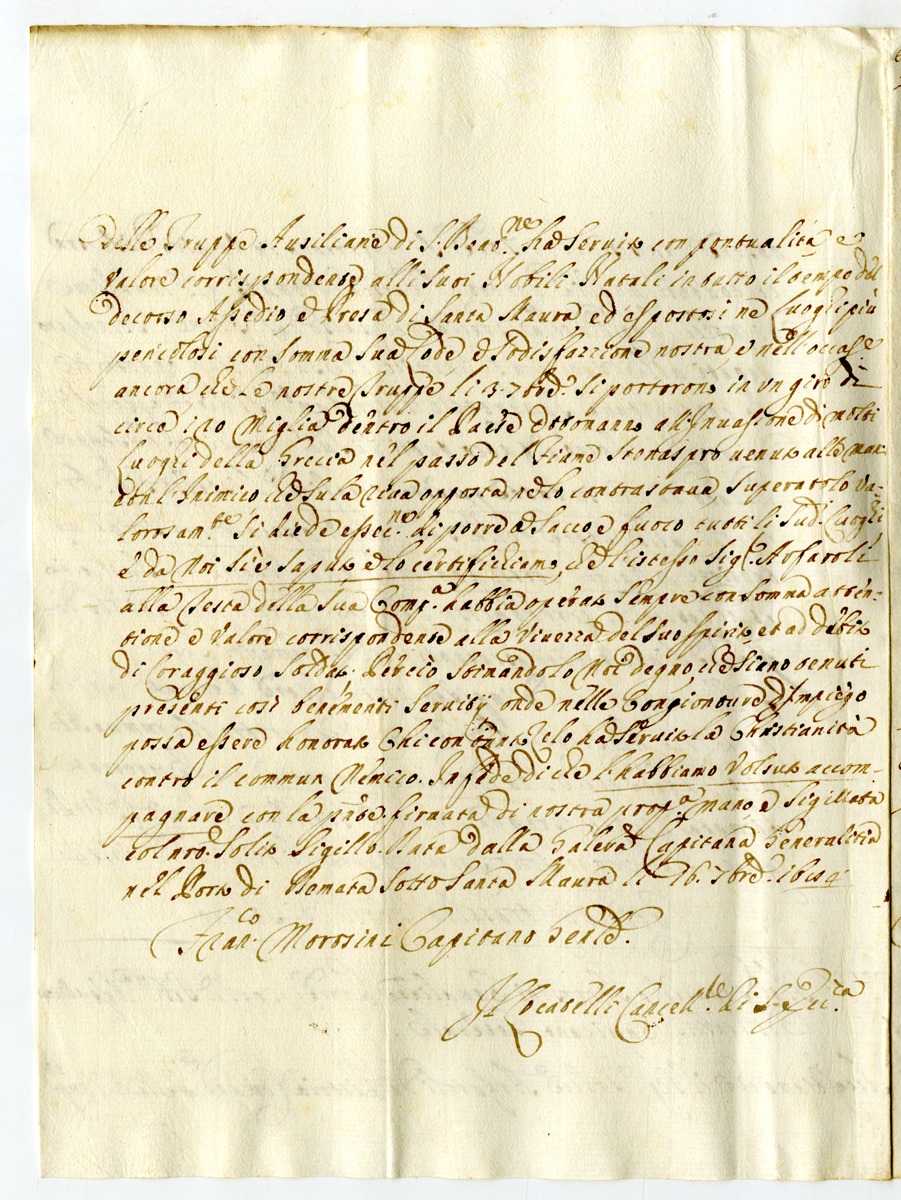 delle Truppe Ausiliarie di S. Beat.ne ha servito con pontualità, e
valore corrispondente alli suoi Nobili Natali in tutto il tempo del
decorso Assedio, e Presa di Santa Maura ed espostosi ne Luoghi più
pericolosi con somma sua Lode e sodisfazzione nostra, e nell'occas.e
ancora che le nostre Truppe li 3. 7bre. si portorono in un giro di
circa 120 Miglia dentro il Paese Ottomanno all'Invasione di molti
Luoghi della Grecia nel passo del fiume pro venuto alle man
con l'Inimico, che su la riva opposta ne lo contrastava, superatolo va-
lorosam.te si diede essec.ne di porre à sacco, e fuoco tutti li sud.i Luoghi
è da Noi si è saputo e lo certifichiamo, che l'istesso Sig.r
alla testa della sua Comp.a habbia operato sempre con somma atten-
tione e valore corrispondente alla vivezza del suo spirito, et ad debito
di Coraggioso Soldato. Perciò stimandolo Noi degno, che siano tenuti
presenti così benemeriti servitij onde nelle Congionture d'Impiego
possa essere honorato chi con tanto Zelo ha servito la Christianità
contro il commun Nemico. In fede di che l'habbiamo volsuto accom-
pagnare con la pnte. firmata di nostra prop.a mano, e sigillata
col nro. solito sigillo. Data dalla Galera Capitana Generalitia
nel Porto di Demata sotto Santa Maura li 16. 7bre. 1684.
Fran.co Morosini Capitano Genle.
Il Cancell.